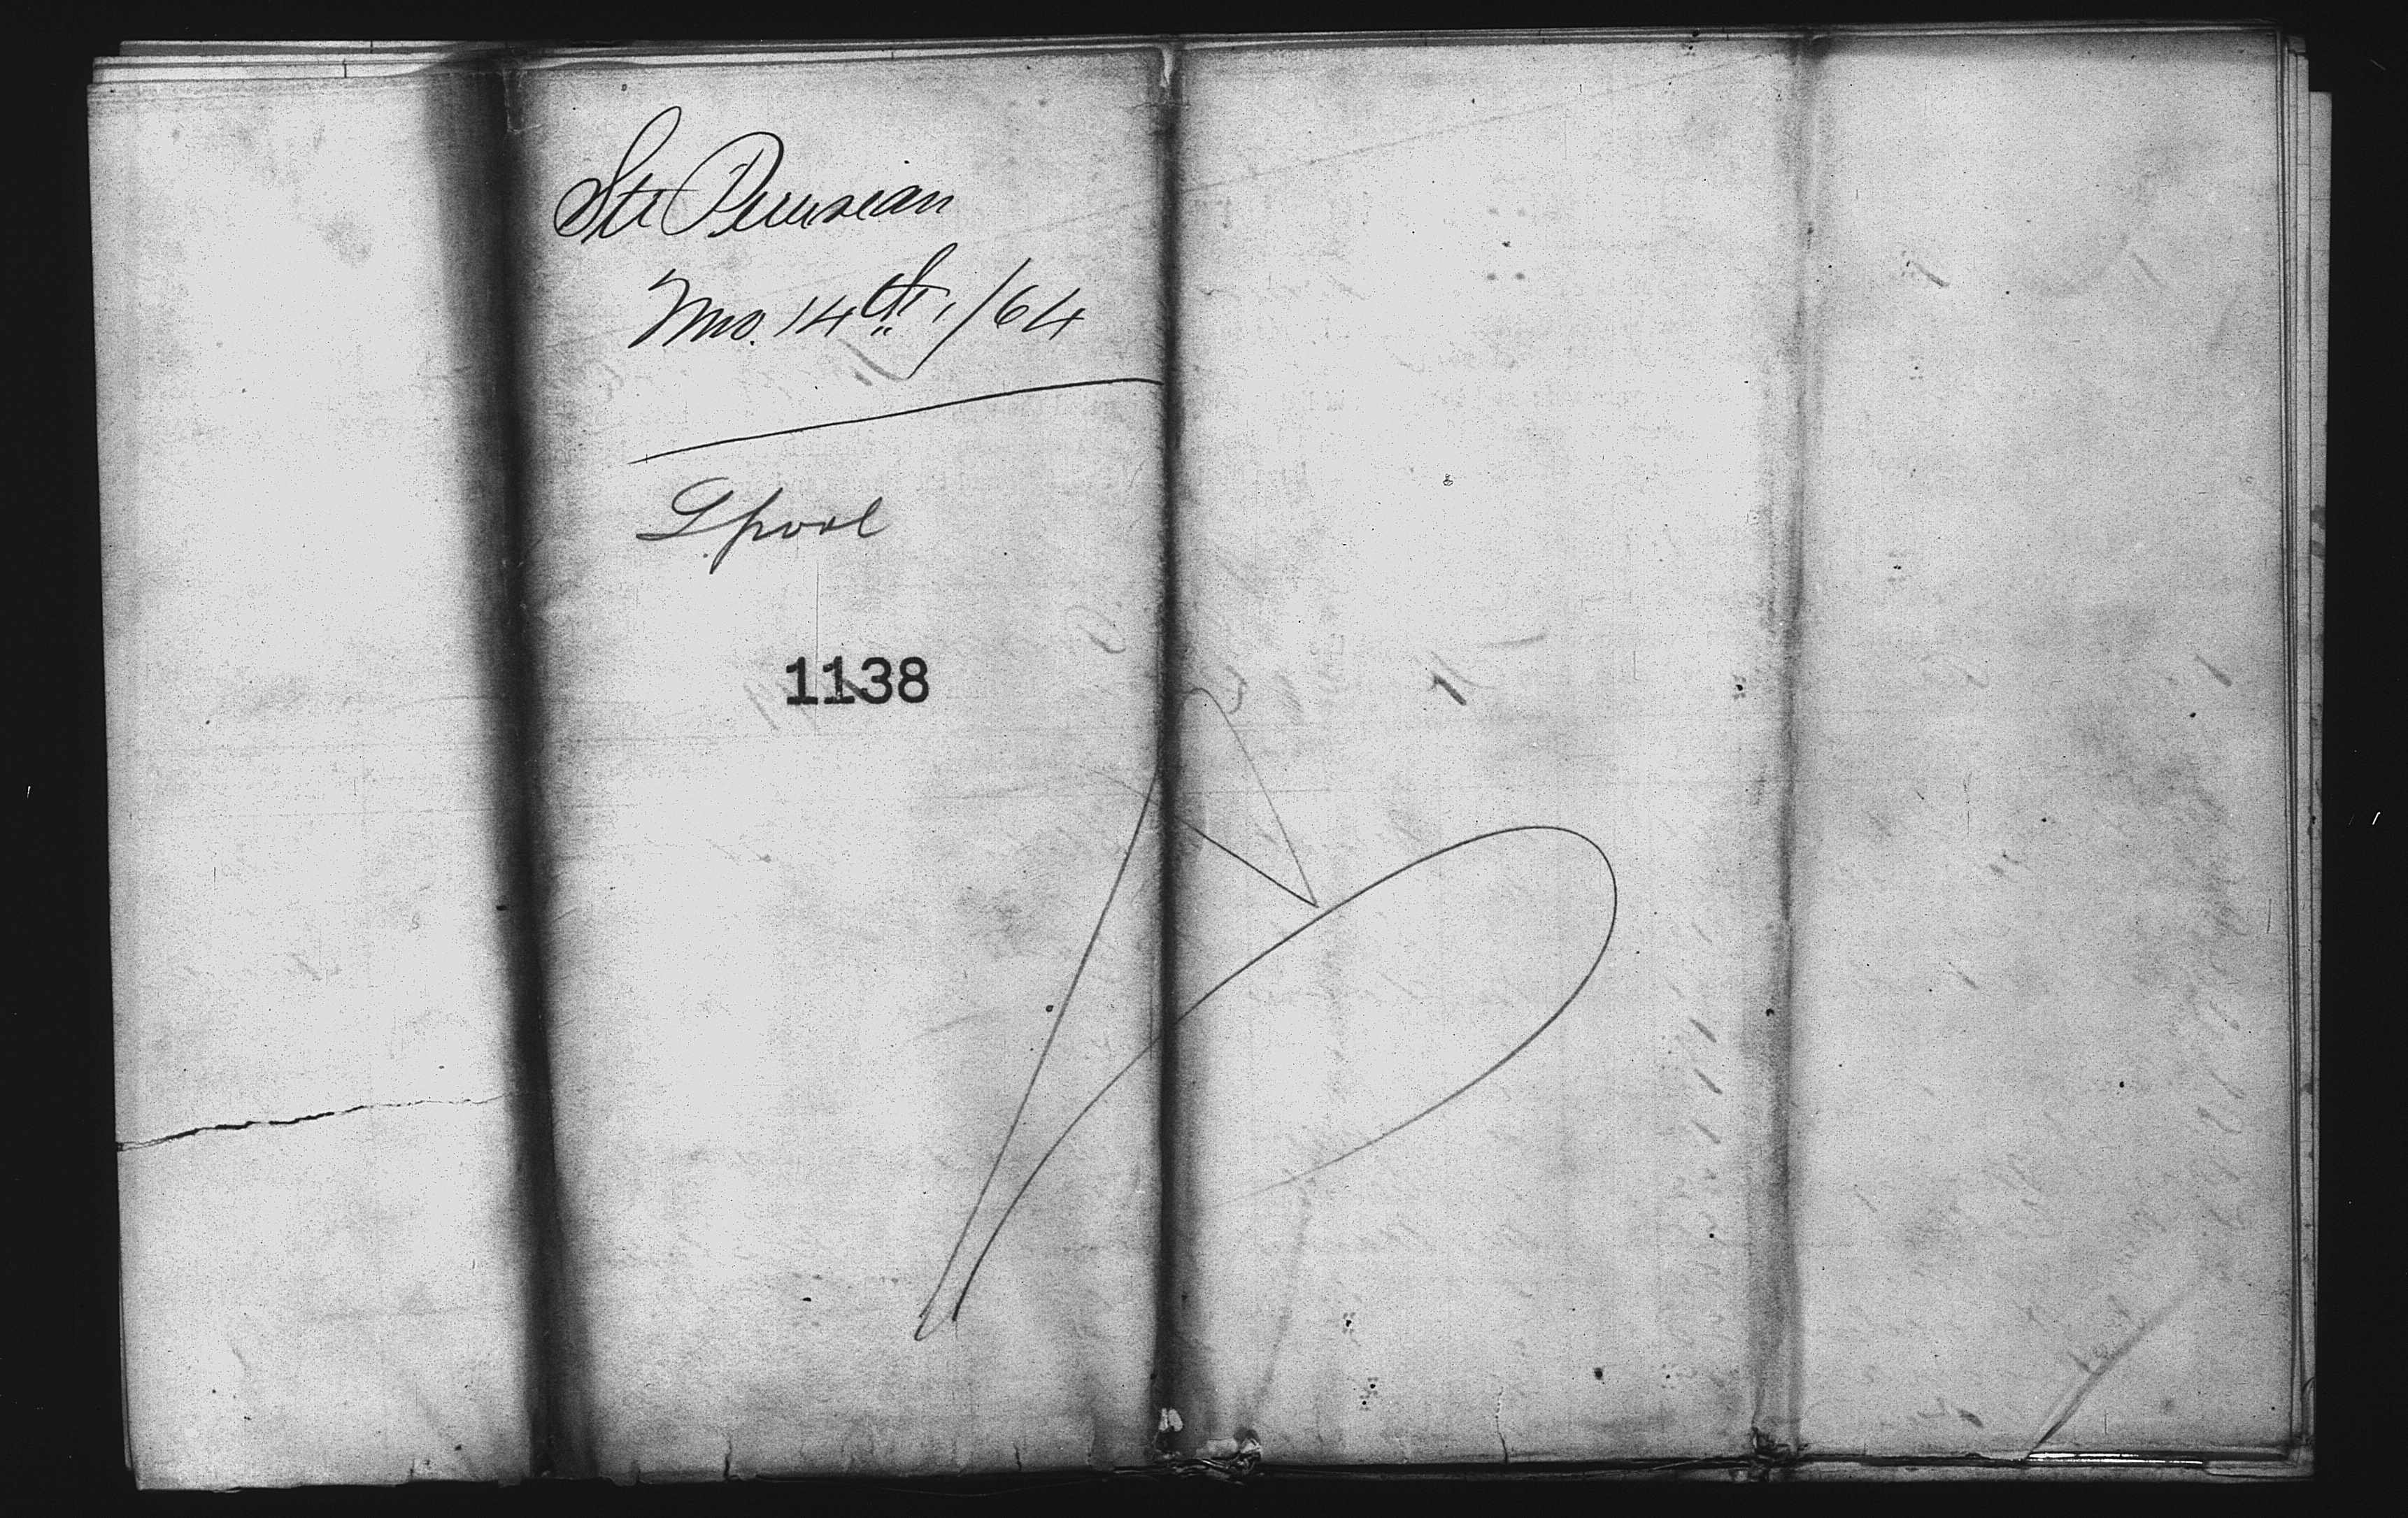 Str Peruvian
Nvo. 14th, /64
Lpool
1138